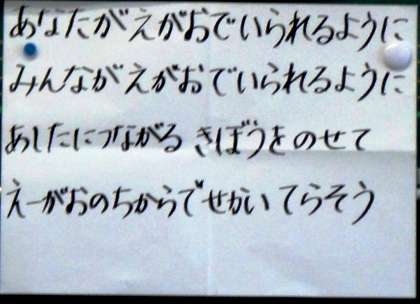 あなたがえがおでいられるように
みんながえがおでいられるように
あしたにつながる きぼうをのせて
えーがおのちからでせかいてらそう